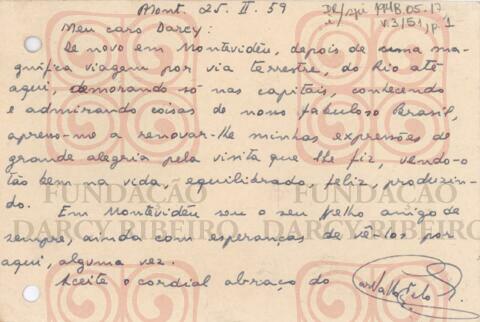 Mont. 25. II. 59
DR/spi 1948.05.17
v.3/51, p.1
Meu caro Darcy:
De novo em Montevidéu, depois de uma ma-
gnífica viagem por via terrestre, do Rio até
aqui, demorando só nas capitais, conhecendo
e admirando coisas de nosso fabuloso Brasil,
apresso-me a renovar-lhe minhas expressões de
grande alegria pela visita que lhe fiz, vendo-o
tão bem na vida, equilibrado, feliz, produzin-
do.
Em Montevidéu sou o seu velho amigo de
sempre, ainda com esperanças de vê-los por
aqui, alguma vez.
Aceite o cordial abraço do
FUNDAÇÃO
DARCY RIBEIRO